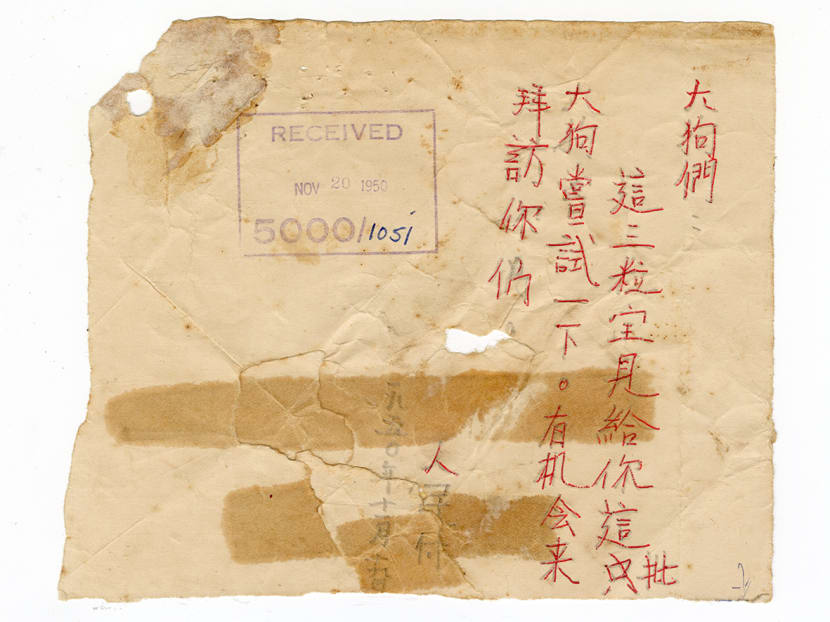 大狗們：
這三粒宝見給你這批
大狗嘗試一下。有机会来
拜訪你们
人民付
一九五〇年十月
RECEIVED
NOV 20 1950
5000/1051